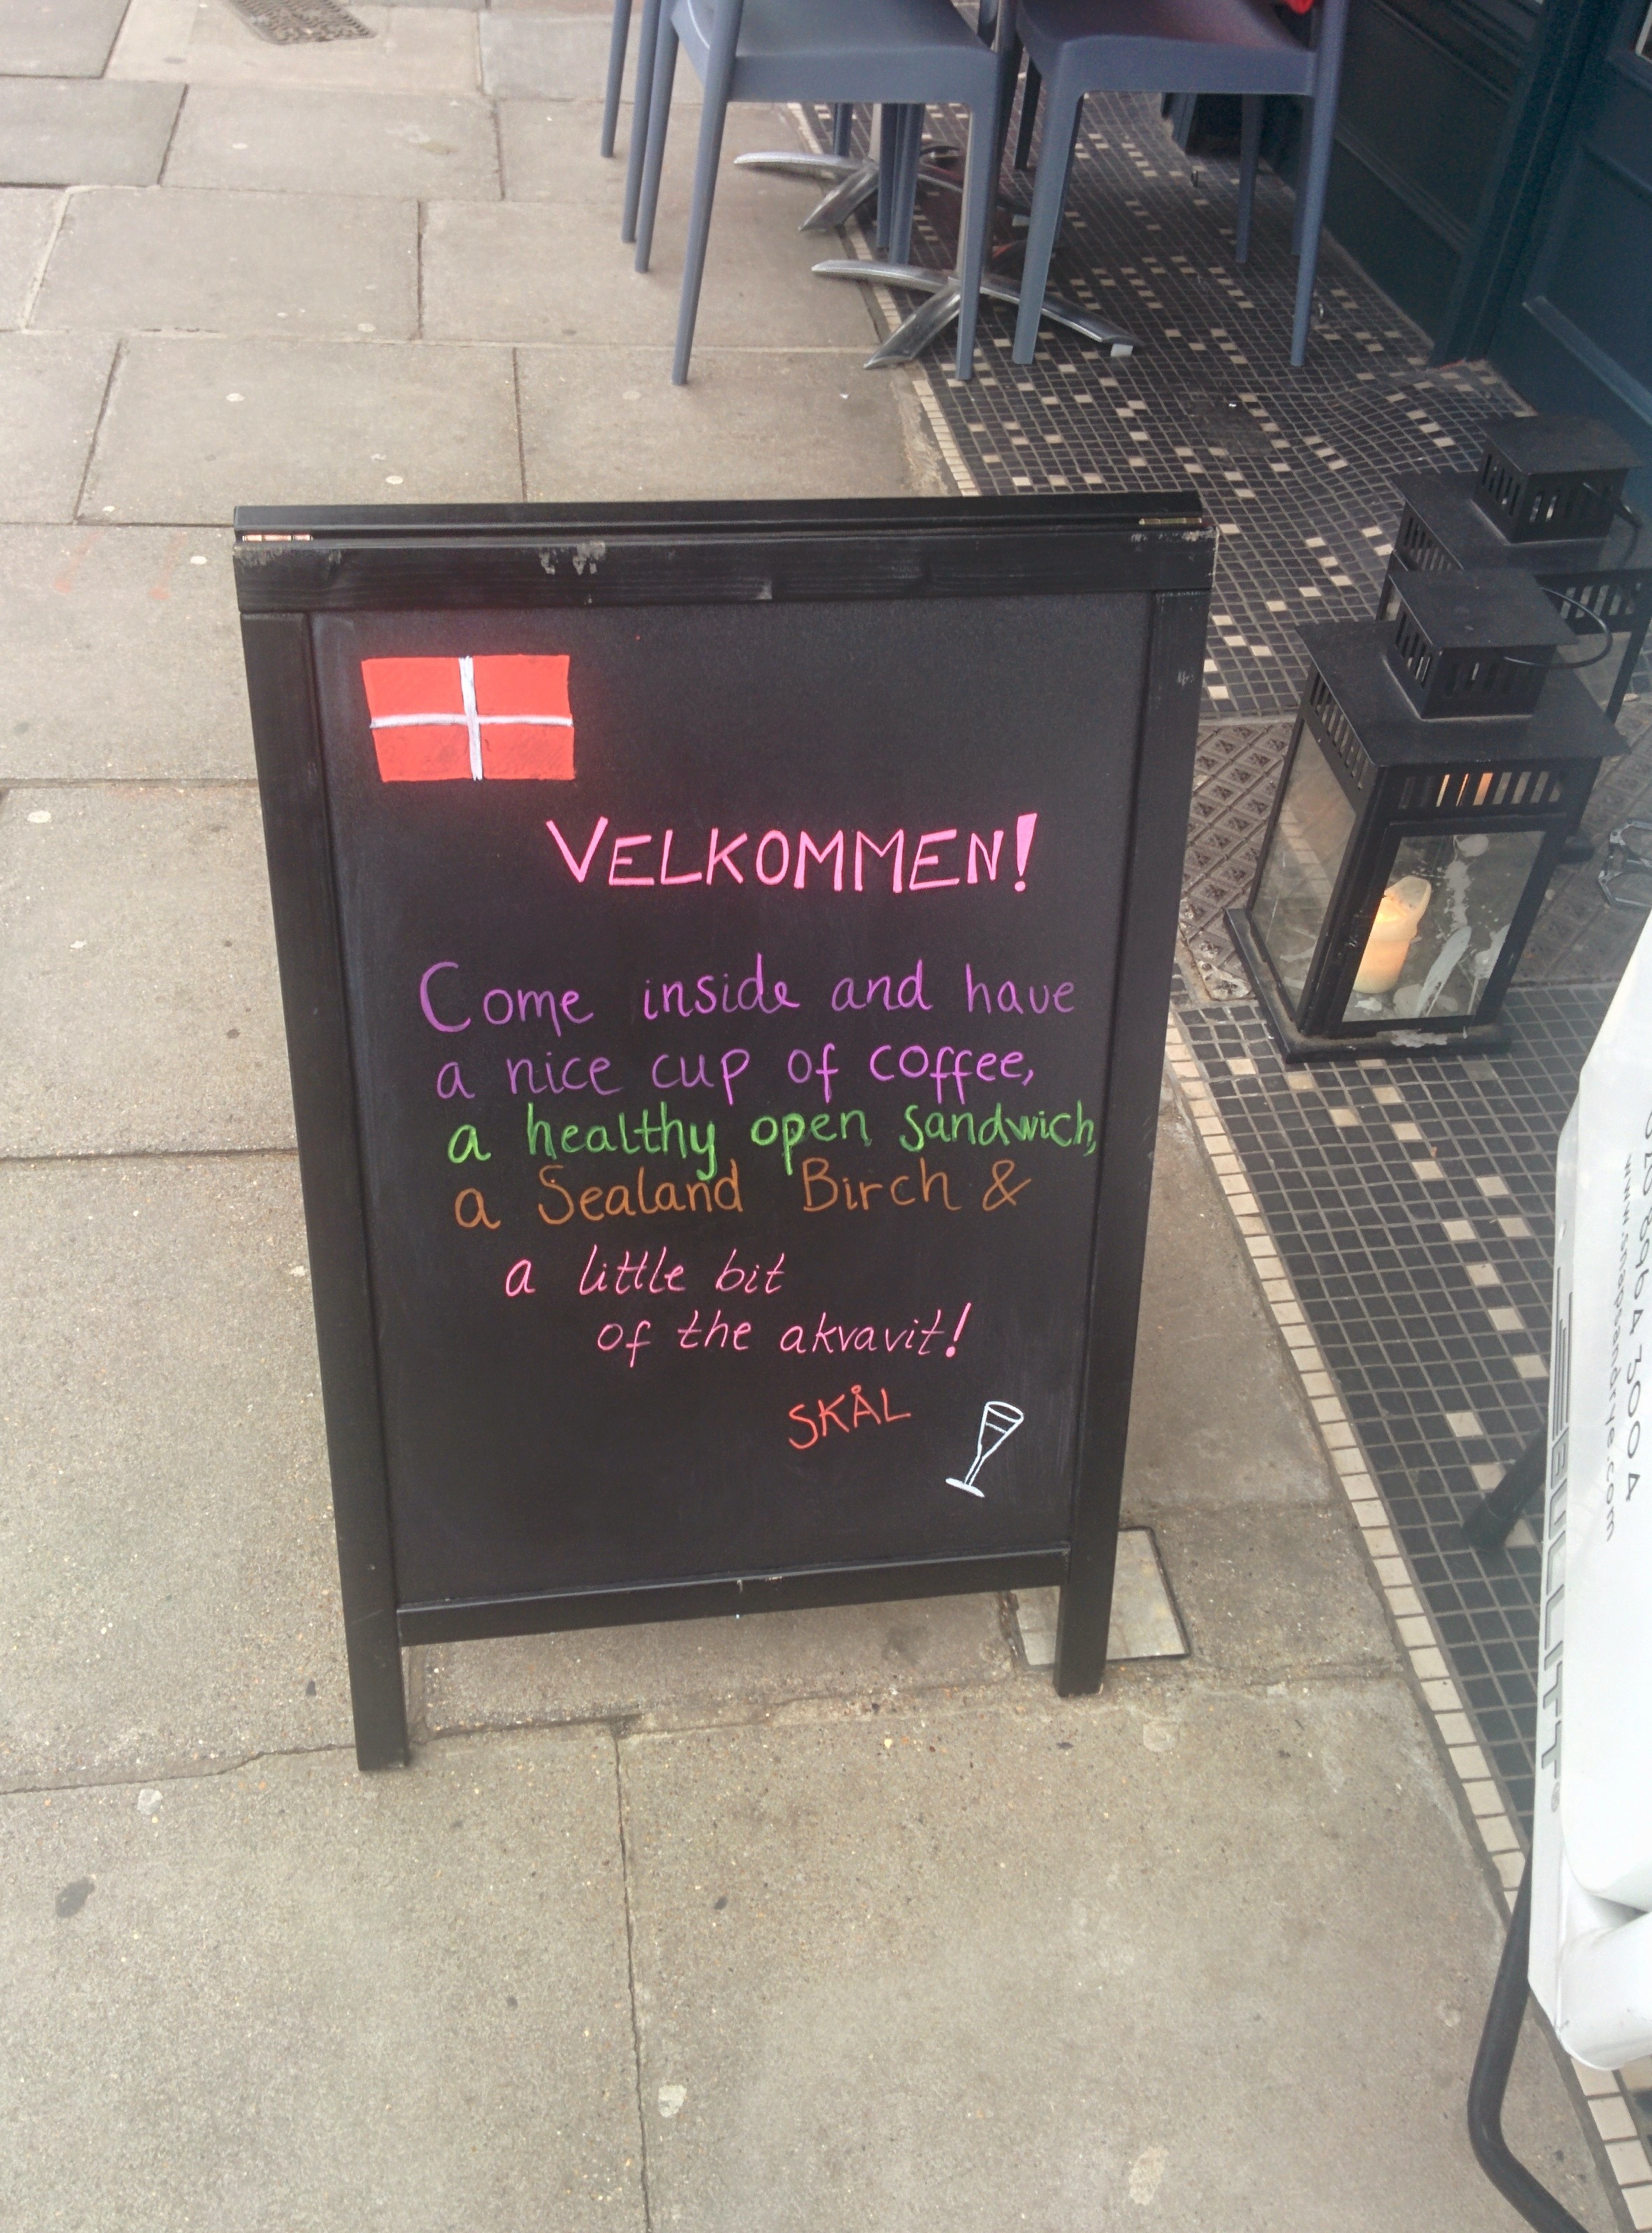 VELKOMMEN!
Come inside and have
a nice cup of coffee,
a healthy open sandwich,
a Sealand Birch &
a little bit
of the akvavit!
SKÅL